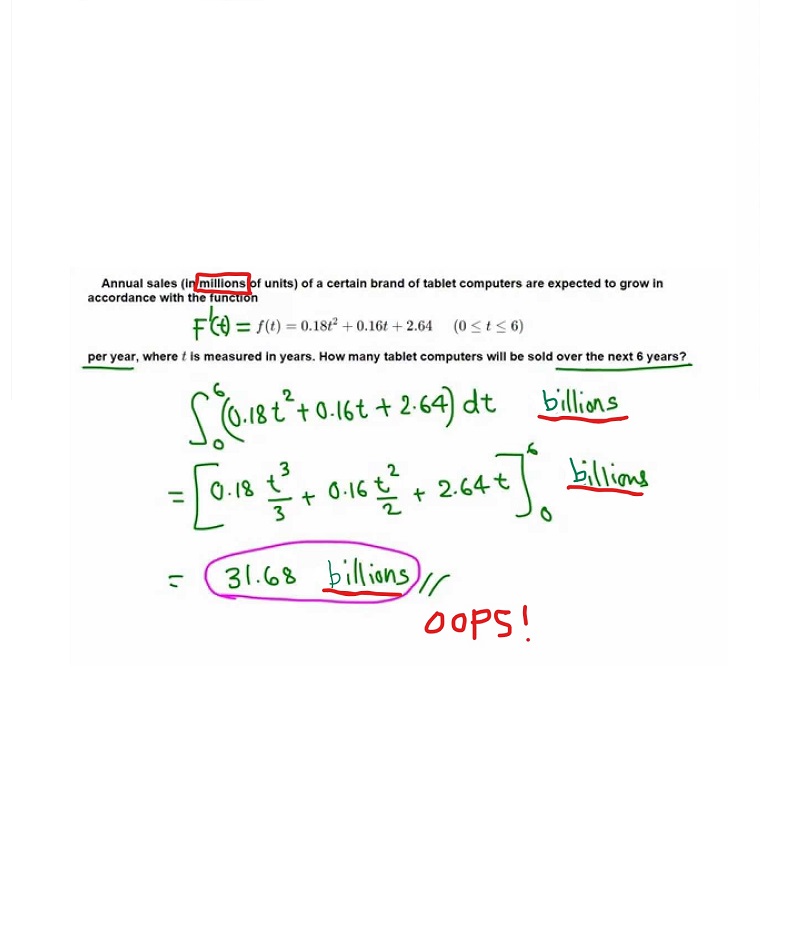 Annual sales (in millions of units) of a certain brand of tablet computers are expected to grow in
accordance with the function
F'(t) = f(t) = 0.18t² + 0.16t + 2.64 (0 ≤ t ≤ 6)
per year, where t is measured in years. How many tablet computers will be sold over the next 6 years?
∫₀⁶ (0.18t² + 0.16t + 2.64) dt billions
= [0.18 t³/3 + 0.16 t²/2 + 2.64t]₀⁶ billions
= 31.68 billions //
OOPS!